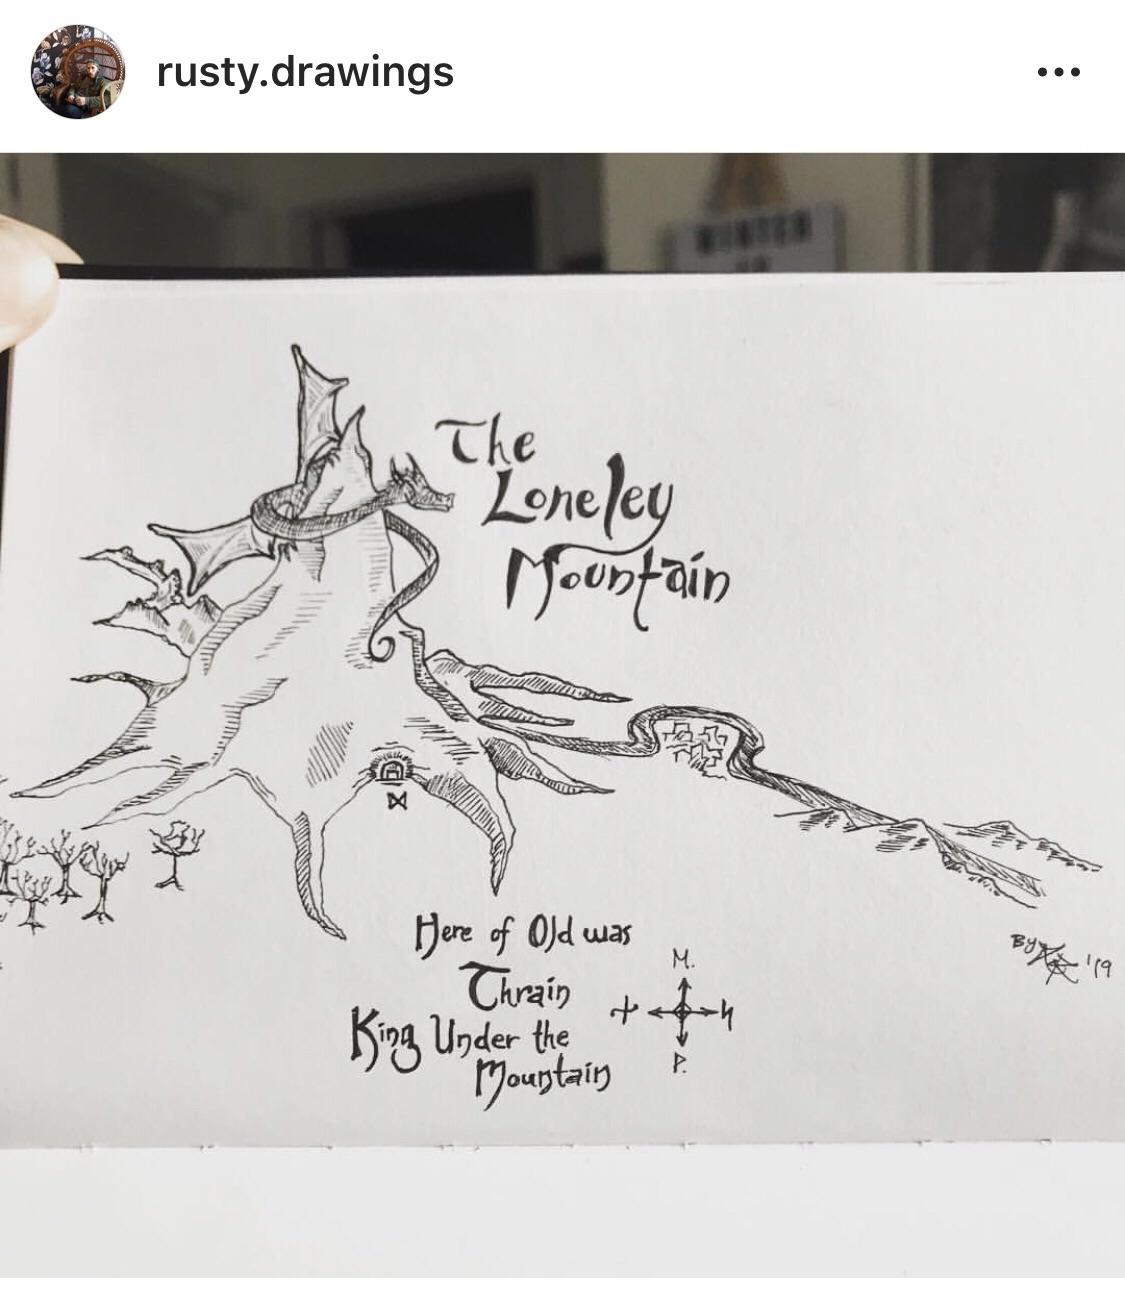 rusty.drawings
WINTER
The
Loneley
Mountain
ᛞ
Here of Old was
Thrain
King Under the
Mountain
M.
P.
By
'19